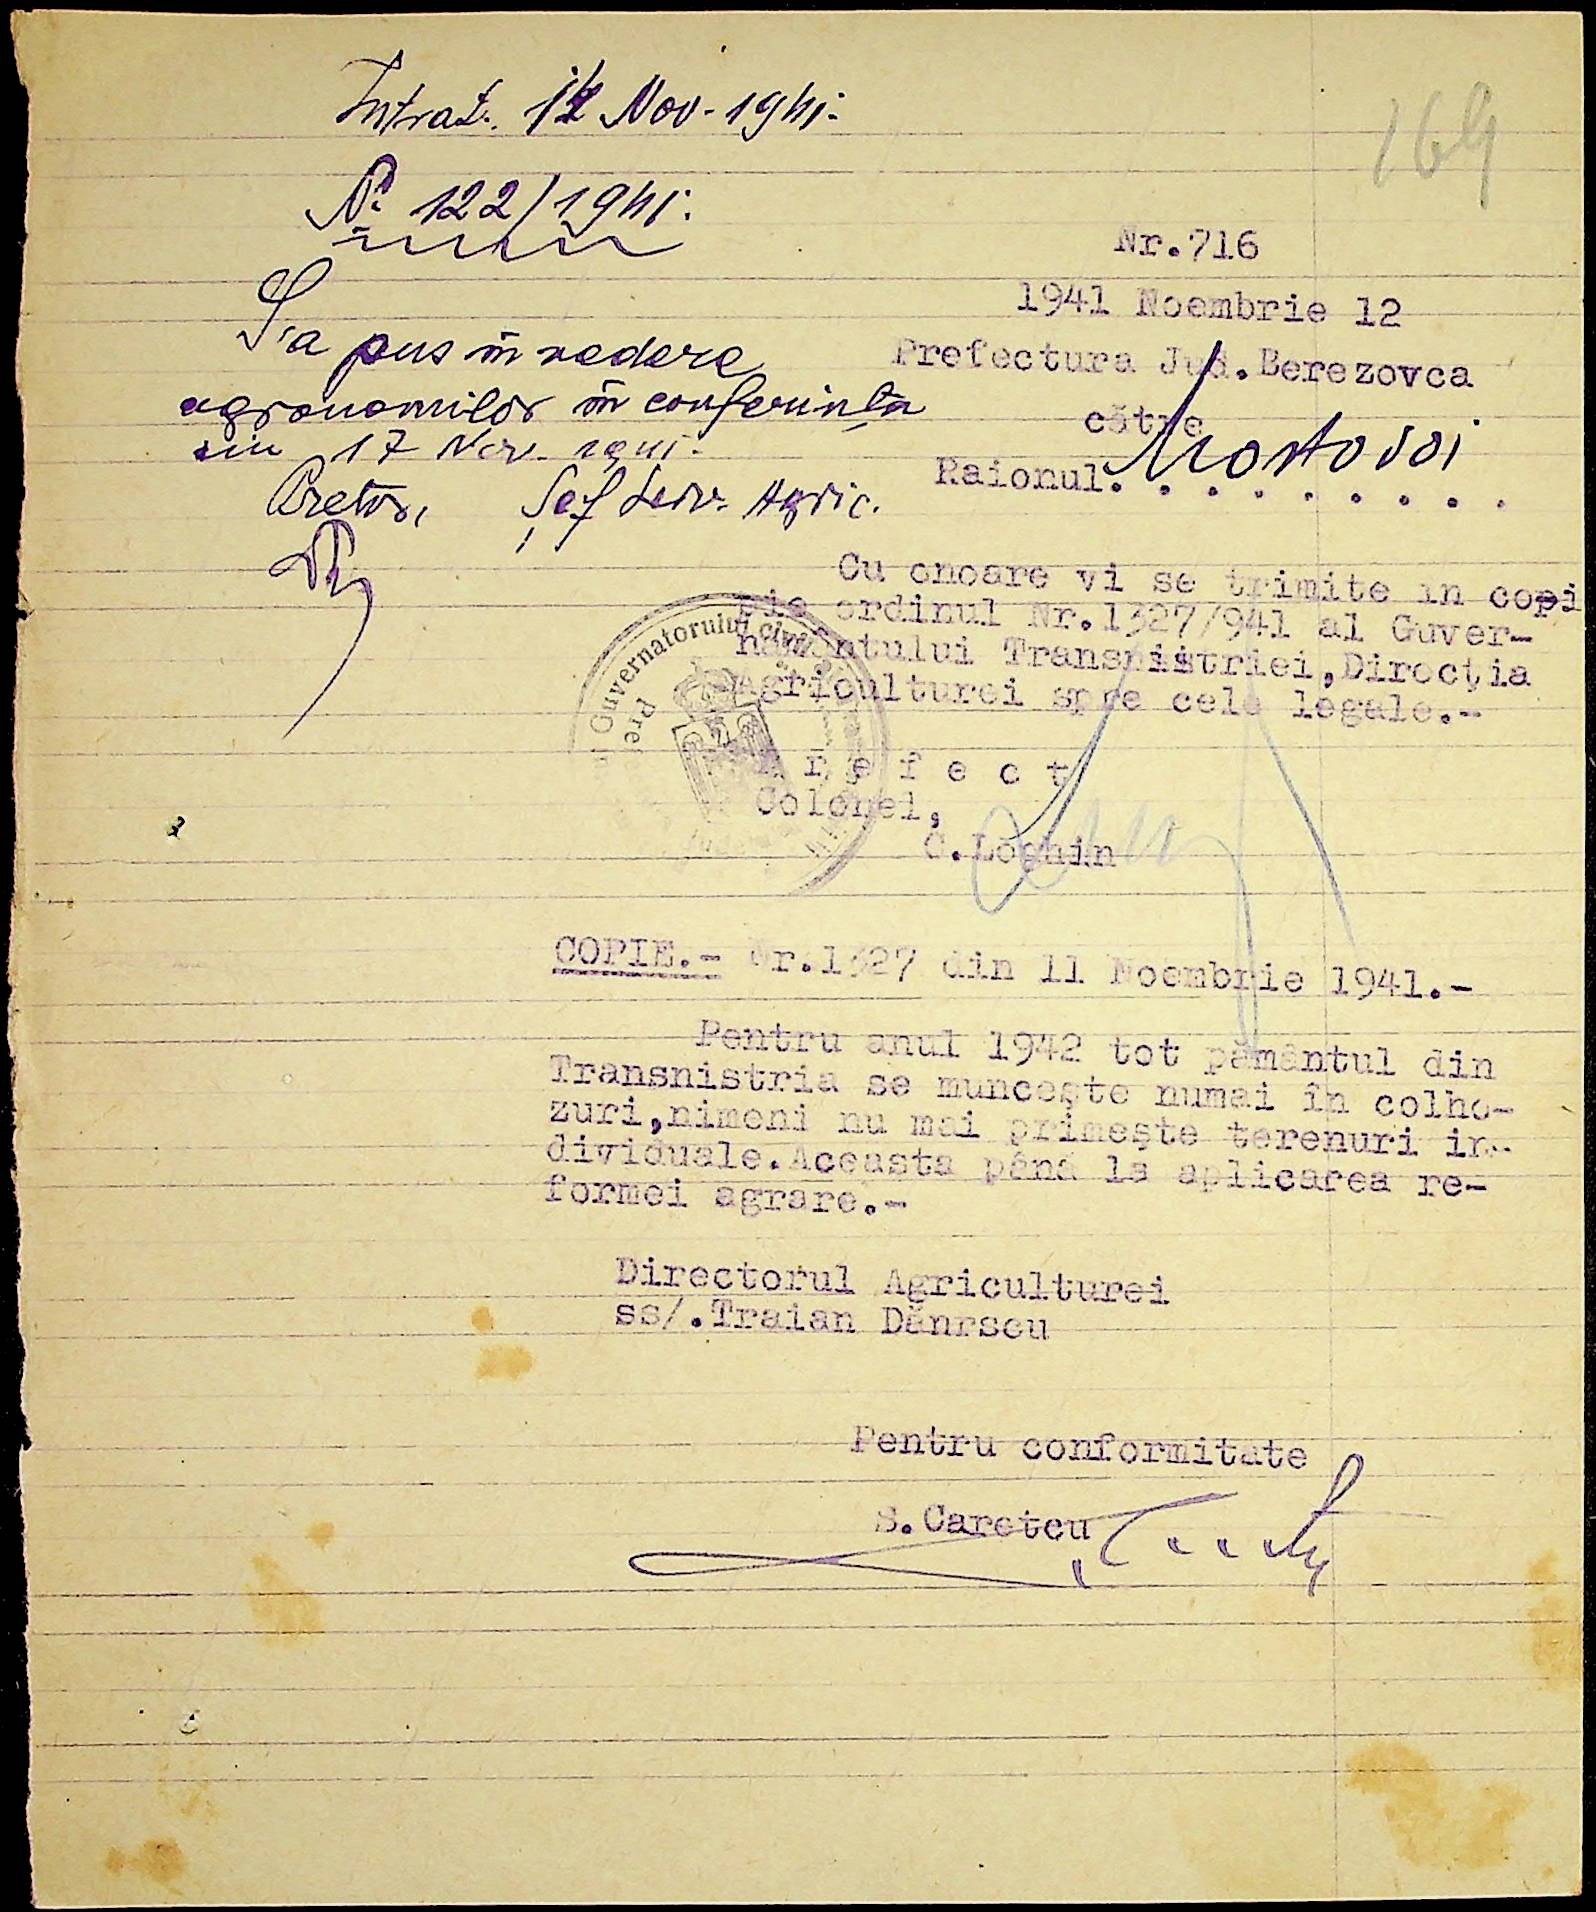 Intrat. 14 Nov. 1941.
169
No. 122/1941.
Nr.716
1941 Noembrie 12
Prefectura Jud.Berezovca
către
Raionul. Mostovoi
S'a pus în vedere
agronomilor în conferința
din 17 Nov. 1941.
Pretor, Șef Serv. Agric.
Cu onoare vi se trimite în copi
pie ordinul Nr.1327/941 al Guver-
nământului Transnistriei,Direcția
Agriculturei spre cele legale.-
Guvernatorului civil
Pref
P r e f e c t
Colonel,
C.Loghin
COPIE.- Nr.1327 din 11 Noembrie 1941.-
Pentru anul 1942 tot pământul din
Transnistria se muncește numai în colho-
zuri,nimeni nu mai primește terenuri in-
dividuale.Aceasta până la aplicarea re-
formei agrare.-
Directorul Agriculturei
ss/.Traian Dănrscu
Pentru conformitate
S.Caretcu